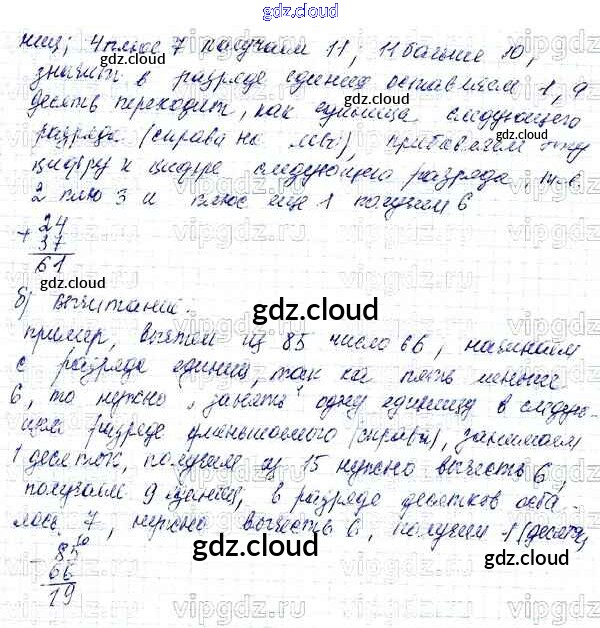 gdz.cloud
ниц; 4 плюс 7 получаем 11; 11 больше 10,
значит в разряде единиц оставляем 1, а
десять переходит, как единица следующего
разряда (справа на лево), прибавляем эту
цифру к цифре следующего разряда, т.е.
2 плюс 3 и плюс еще 1 получим 6
+ 24
37
61
б) Вычитание:
пример, вычтем из 85 число 66, начинаем
с разряда единиц, так ка пять меньше
6, то нужно "занять" одну единицу в следую-
щем разряде уменьшаемого (справа), занимаем
1 десяток, получим из 15 нужно вычесть 6,
получаем 9 единиц, в разряде десятков оста-
лось 7, нужно вычесть 6, получим 1 (десяток)
- 85
66
19
gdz.cloud
gdz.cloud
gdz.cloud
gdz.cloud
gdz.cloud
gdz.cloud
gdz.cloud